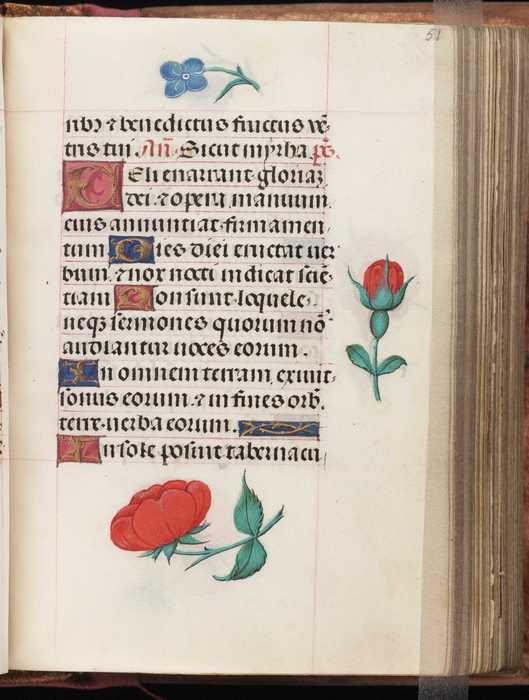 51
ribꝰ ⁊ benedictus fructus vē-
tris tui. Añ. Sicut myrha. ps̄.
Celi enarrant gloriaꝫ
dei: ⁊ opera manuum
eius annunciat firmamen-
tum Dies diei eructat ver
bum: ⁊ nox nocti indicat sciē-
tiam Non sunt loquele:
neqꝫ sermones quorum nō
audiantur voces eorum.
In omnem terram exiuit
sonus eorum: ⁊ in fines orb̄.
terre verba eorum.
In sole posuit tabernacu